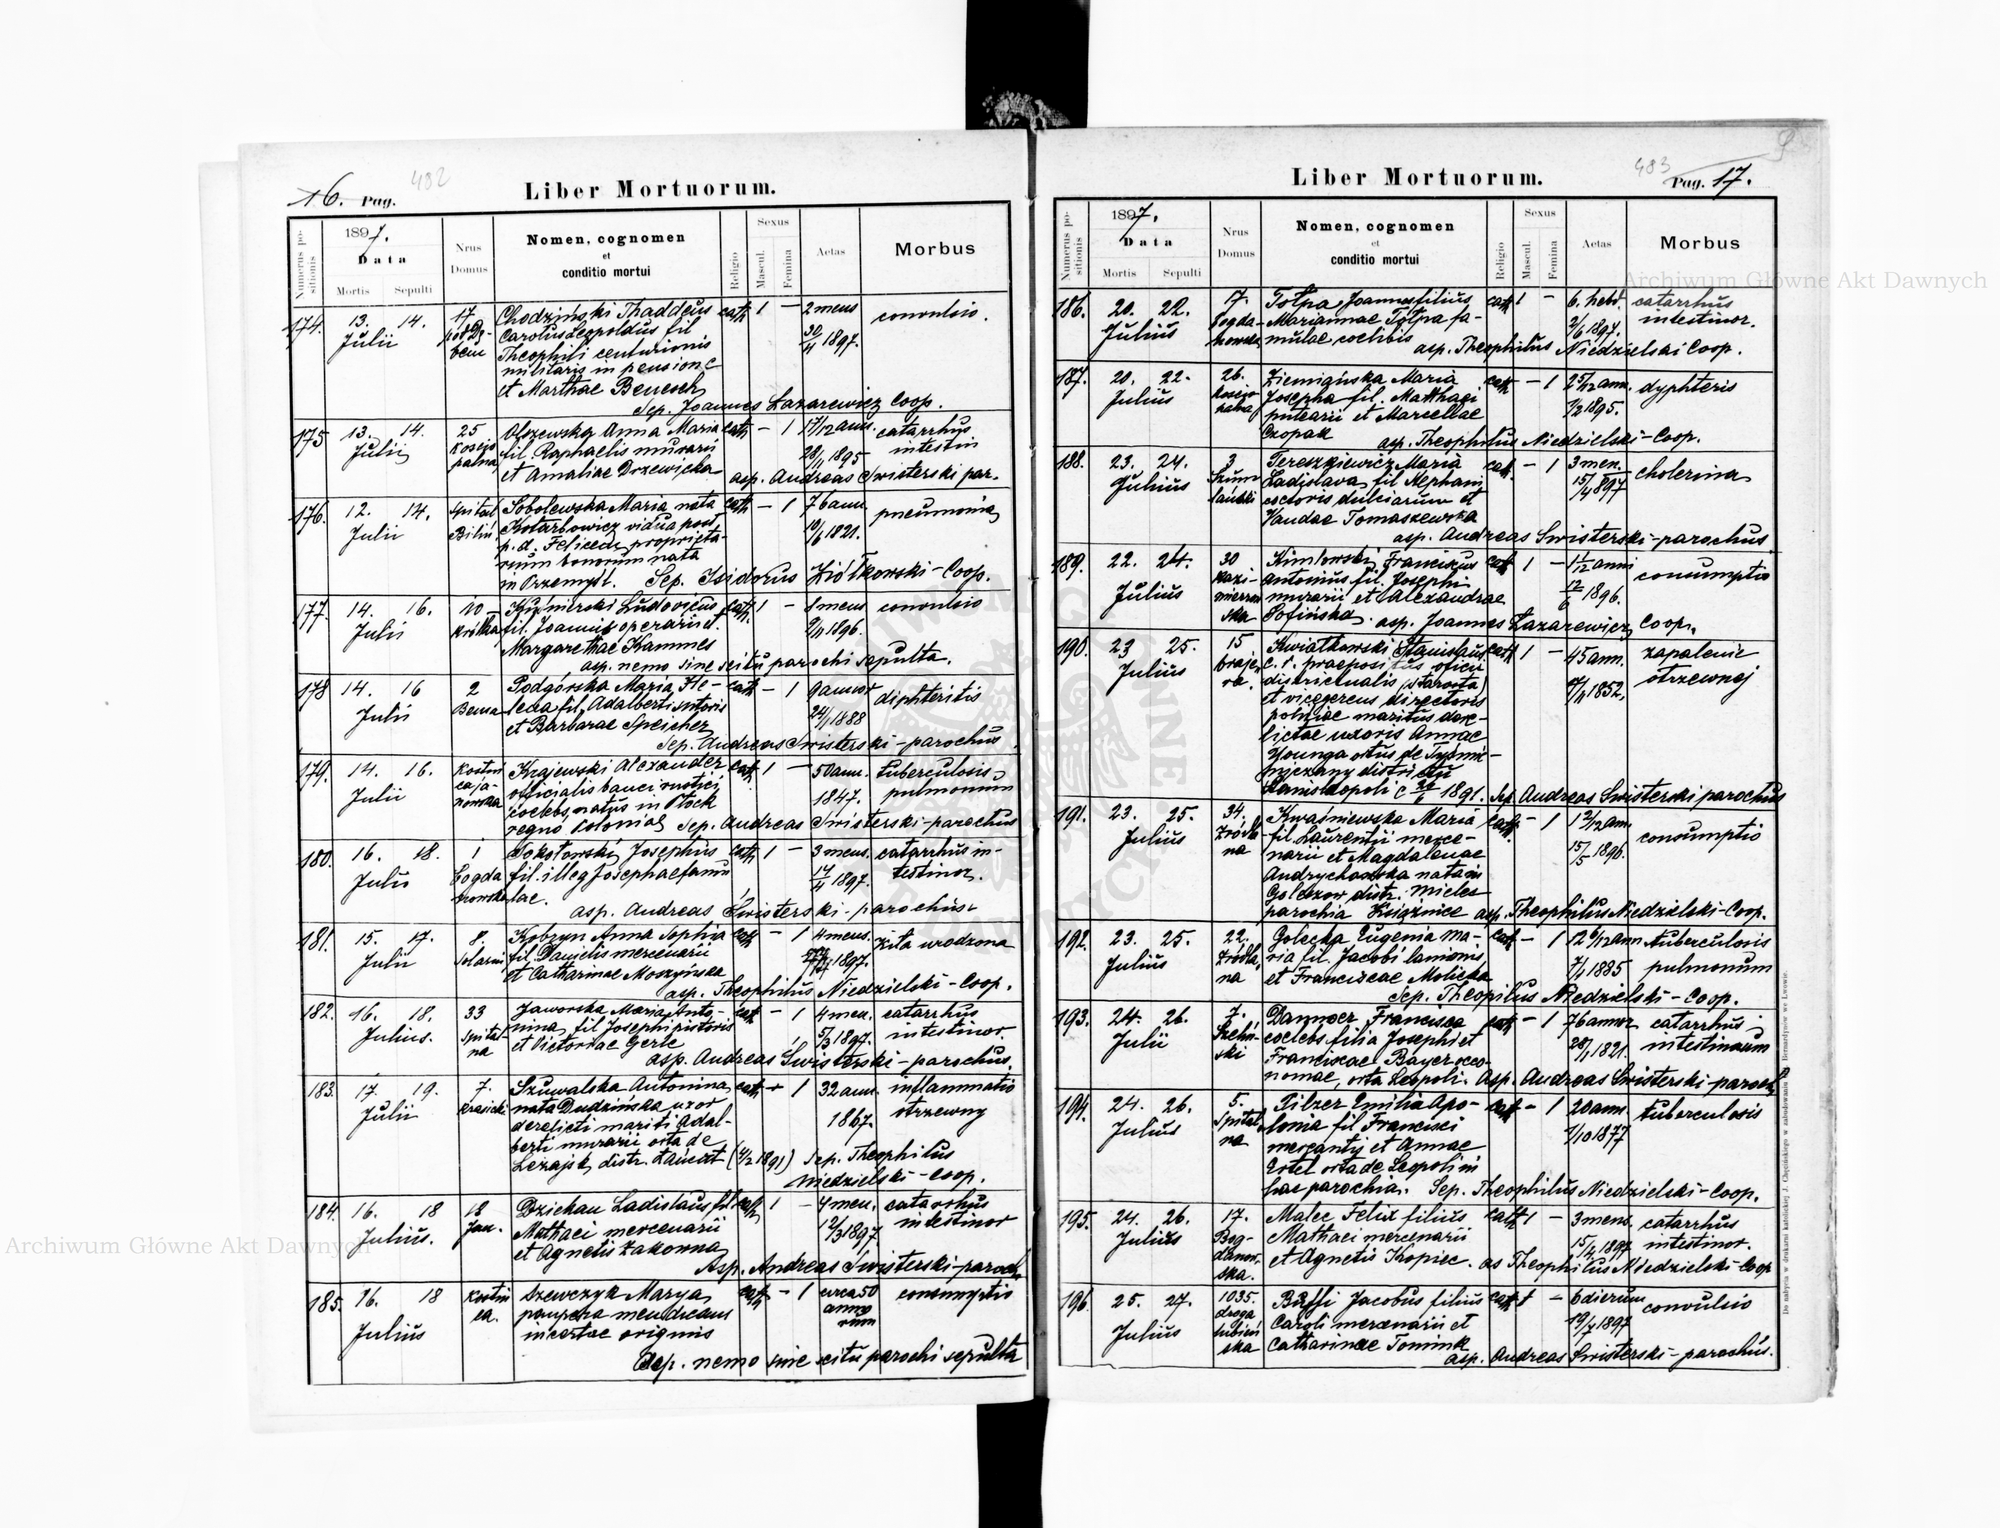 16. Pag. 482
Liber Mortuorum.
Numerus positionis
1897.
Data
Mortis Sepulti
Nrus Domus
Nomen, cognomen
et
conditio mortui
Religio
Sexus
Mascul.
Femina
Aetas
Morbus
174. 13. 14. 17 Chodziński Thaddeus cath 1 — 2 mens convulsio.
Julii Carolus Leopoldus fil 30/4 1897.
Theophili centurionis
militaris in pensione
et Marthae Benesch
Sep. Joannes Lazarewicz Coop.
175 13. 14. 25 Olszewska Anna Maria cath — 1 17/12 ann. catarrhus
Julii fil. Raphaelis murarii 28/1 1895 intestin
et Amaliae Drzewicka asp. Andreas Swisterski par.
176. 12. 14. Spital Sobolewska Maria nata cath — 1 76 ann. pneumonia
Julii Kotarbowicz vidua post 10/6 1821.
p. d. Felicem proprieta-
rium bonorum nata
in Przemyśl. Sep. Isidorus Ziółkowski-Coop.
177. 14. 16. 10 Kuśnierski Ludovicus cath. 1 — 8 mens convulsio
Julii Krótka fil. Joannis operarii et 9/11 1896.
Margarethae Kammes
asp. nemo sine scitu parochi sepulta.
178 14. 16 2 Podgórska Maria He- cath — 1 9 annor diphteritis
Julii lena fil. Adalberti sutoris 24/1 1888
et Barbarae Speicher
Sep. Andreas Swisterski-parochus.
179. 14. 16. Krajewski Alexander cath. 1 — 50 ann. tuberculosis
Julii officialis banci rustici 1847. pulmonum
coelebs, natus in Płock
regno Poloniae Sep. Andreas Swisterski-parochus
180. 16. 18. 1 Sokołowski Josephus cath 1 — 3 mens. catarrhus in-
Julii Bogda fil. illeg Josephae famu 17/4 1897. testinor.
nowska lae.
asp. Andreas Swisterski-parochus
181. 15. 17. 8. Kobryn Anna Sophia cath — 1 4 mens. źile urodzona
Julii Solarni fil. Danielis mercenarii 1897.
et Catharinae Moszyńska
asp. Theophilus Niedzielski-Coop.
182. 16. 18. 33 Jaworska Maria Anto- cath — 1 4 men. catarrhus
Julius. Spital- nina fil Josephi pistoris 5/3 1897. intestinor.
na et Victoriae Gerle
asp. Andreas Swisterski-parochus.
183. 17. 19. 7. Szuwalska Antonina cath — 1 32 ann. inflammatio
Julii Krasicki nata Dudzińska uxor 1867. otrzewny
derelicti mariti Adal-
berti murarii orta de
Leżajsk distr. Łańcut (4/2 1891) Sep. Theophilus
Niedzielski-Coop.
184. 16. 18 18 Dziekan Ladislaus fil cath 1 — 4 men. catarrhus
Julius. Jan. Mathaei mercenarii 12/3 1897 intestinor
et Agnetis Zakonna
Asp. Andreas Swisterski-paroch
185. 16. 18 Kostni Szewczyk Marya cath — 1 circa 50 consumptio
Julius ca. paupera mendicans annorum
incertae originis
Asp. nemo sine scitu parochi sepulta
483 Pag. 17.
Liber Mortuorum.
Numerus positionis
1897.
Data
Mortis Sepulti
Nrus Domus
Nomen, cognomen
et
conditio mortui
Religio
Sexus
Mascul.
Femina
Aetas
Morbus
186. 20. 22. 17. Tołpa Joannes filius cath 1 — 6. hebd. catarrhus
Julius Bogda- Mariannae Tołpa fa- 2/6 1897. intestinor.
nowska mulae coelibis
asp. Theophilus Niedzielski Coop.
187. 20. 22. 26. Ziemiańska Maria cath — 1 2 5/12 ann. dyphteris
Julius Josepha fil. Matthaei 1/2 1895.
putearii et Marcellae
Czopak asp. Theophilus Niedzielski-Coop.
188. 23. 24. 3 Tereszkiewicz Maria cath. — 1 3 men. cholerina
Julius Ladislava fil Stephani 15/4 897
coctoris dulciarum et
Vandae Tomaszewska
asp. Andreas Swisterski-parochus.
189. 22. 24. 30 Kimlowski Franciscus cath 1 — 1 1/12 anni consumptio
Julius kazi- Antonius fil. Josephi 12/6 1896.
mierzow murarii et Alexandrae
ska Sofińska. asp. Joannes Lazarewicz Coop.
190. 23 25. 15 Kwiatkowski Stanislaus cath 1 — 45 ann. zapalenie
Julius c. r. praepositus officii 1852. otrzewnej
districtualis (starosta)
et vicegerens directoris
politiae maritus dere-
lictae uxoris Annae
Younga ortus de Tyśmie-
niczany districtu
Stanislaopoli 1891. Sep. Andreas Swisterski parochus
191. 23. 25. 34. Kwaśniewska Maria cath. — 1 1 2/12 ann. consumptio
Julius Źródla- fil. Laurentii merce- 15/5 1896.
na narii et Magdalenae
Andrychowska nata in
Goleszow distr. Mielec
parochia Książnice asp. Theophilus Niedzielski-Coop.
192. 23. 25. 22. Golecka Eugenia Ma- cath. — 1 12 6/12 ann tuberculosis
Julius Źródla- ria fil. Jacobi lanionis 7/1 1885 pulmonum
na et Franciscae Molicka
Sep. Theopilus Niedzielski-Coop.
193. 24. 26. 7. Dannoer Francisca cath — 1 76 annor catarrhus
Julii coelebs filia Josephi et 28/1 1821. intestinorum
Franciscae Bayer oeco-
nomae, orta Leopoli. Asp. Andreas Swisterski paroch
194. 24. 26. 5. Pilzer Emilia Apo- cath — 1 20 ann. tuberculosis
Julius Spital- lonia fil Francisci 1/10 1877
na mercantis et Annae
Ertel orta de Leopoli in
hac parochia. Sep. Theophilus Niedzielski-Coop.
195. 24. 26. 17. Malec Felix filius cath 1 — 3 mens. catarrhus
Julius Bog- Mathaei mercenarii 15/4 1897 intestinor.
danow- et Agnetis Kopiec. as Theophilus Niedzielski-Coop
ska.
196. 25. 27. 1035. Buffi Jacobus filius cath 1 — 6 dierum convulsio
Julius droga Caroli mercenarii et 19/7 1897
ska Catharinae Tominik
asp. Andreas Swisterski-parochus.
Archiwum Główne Akt Dawnych
Archiwum Główne Akt Dawnych